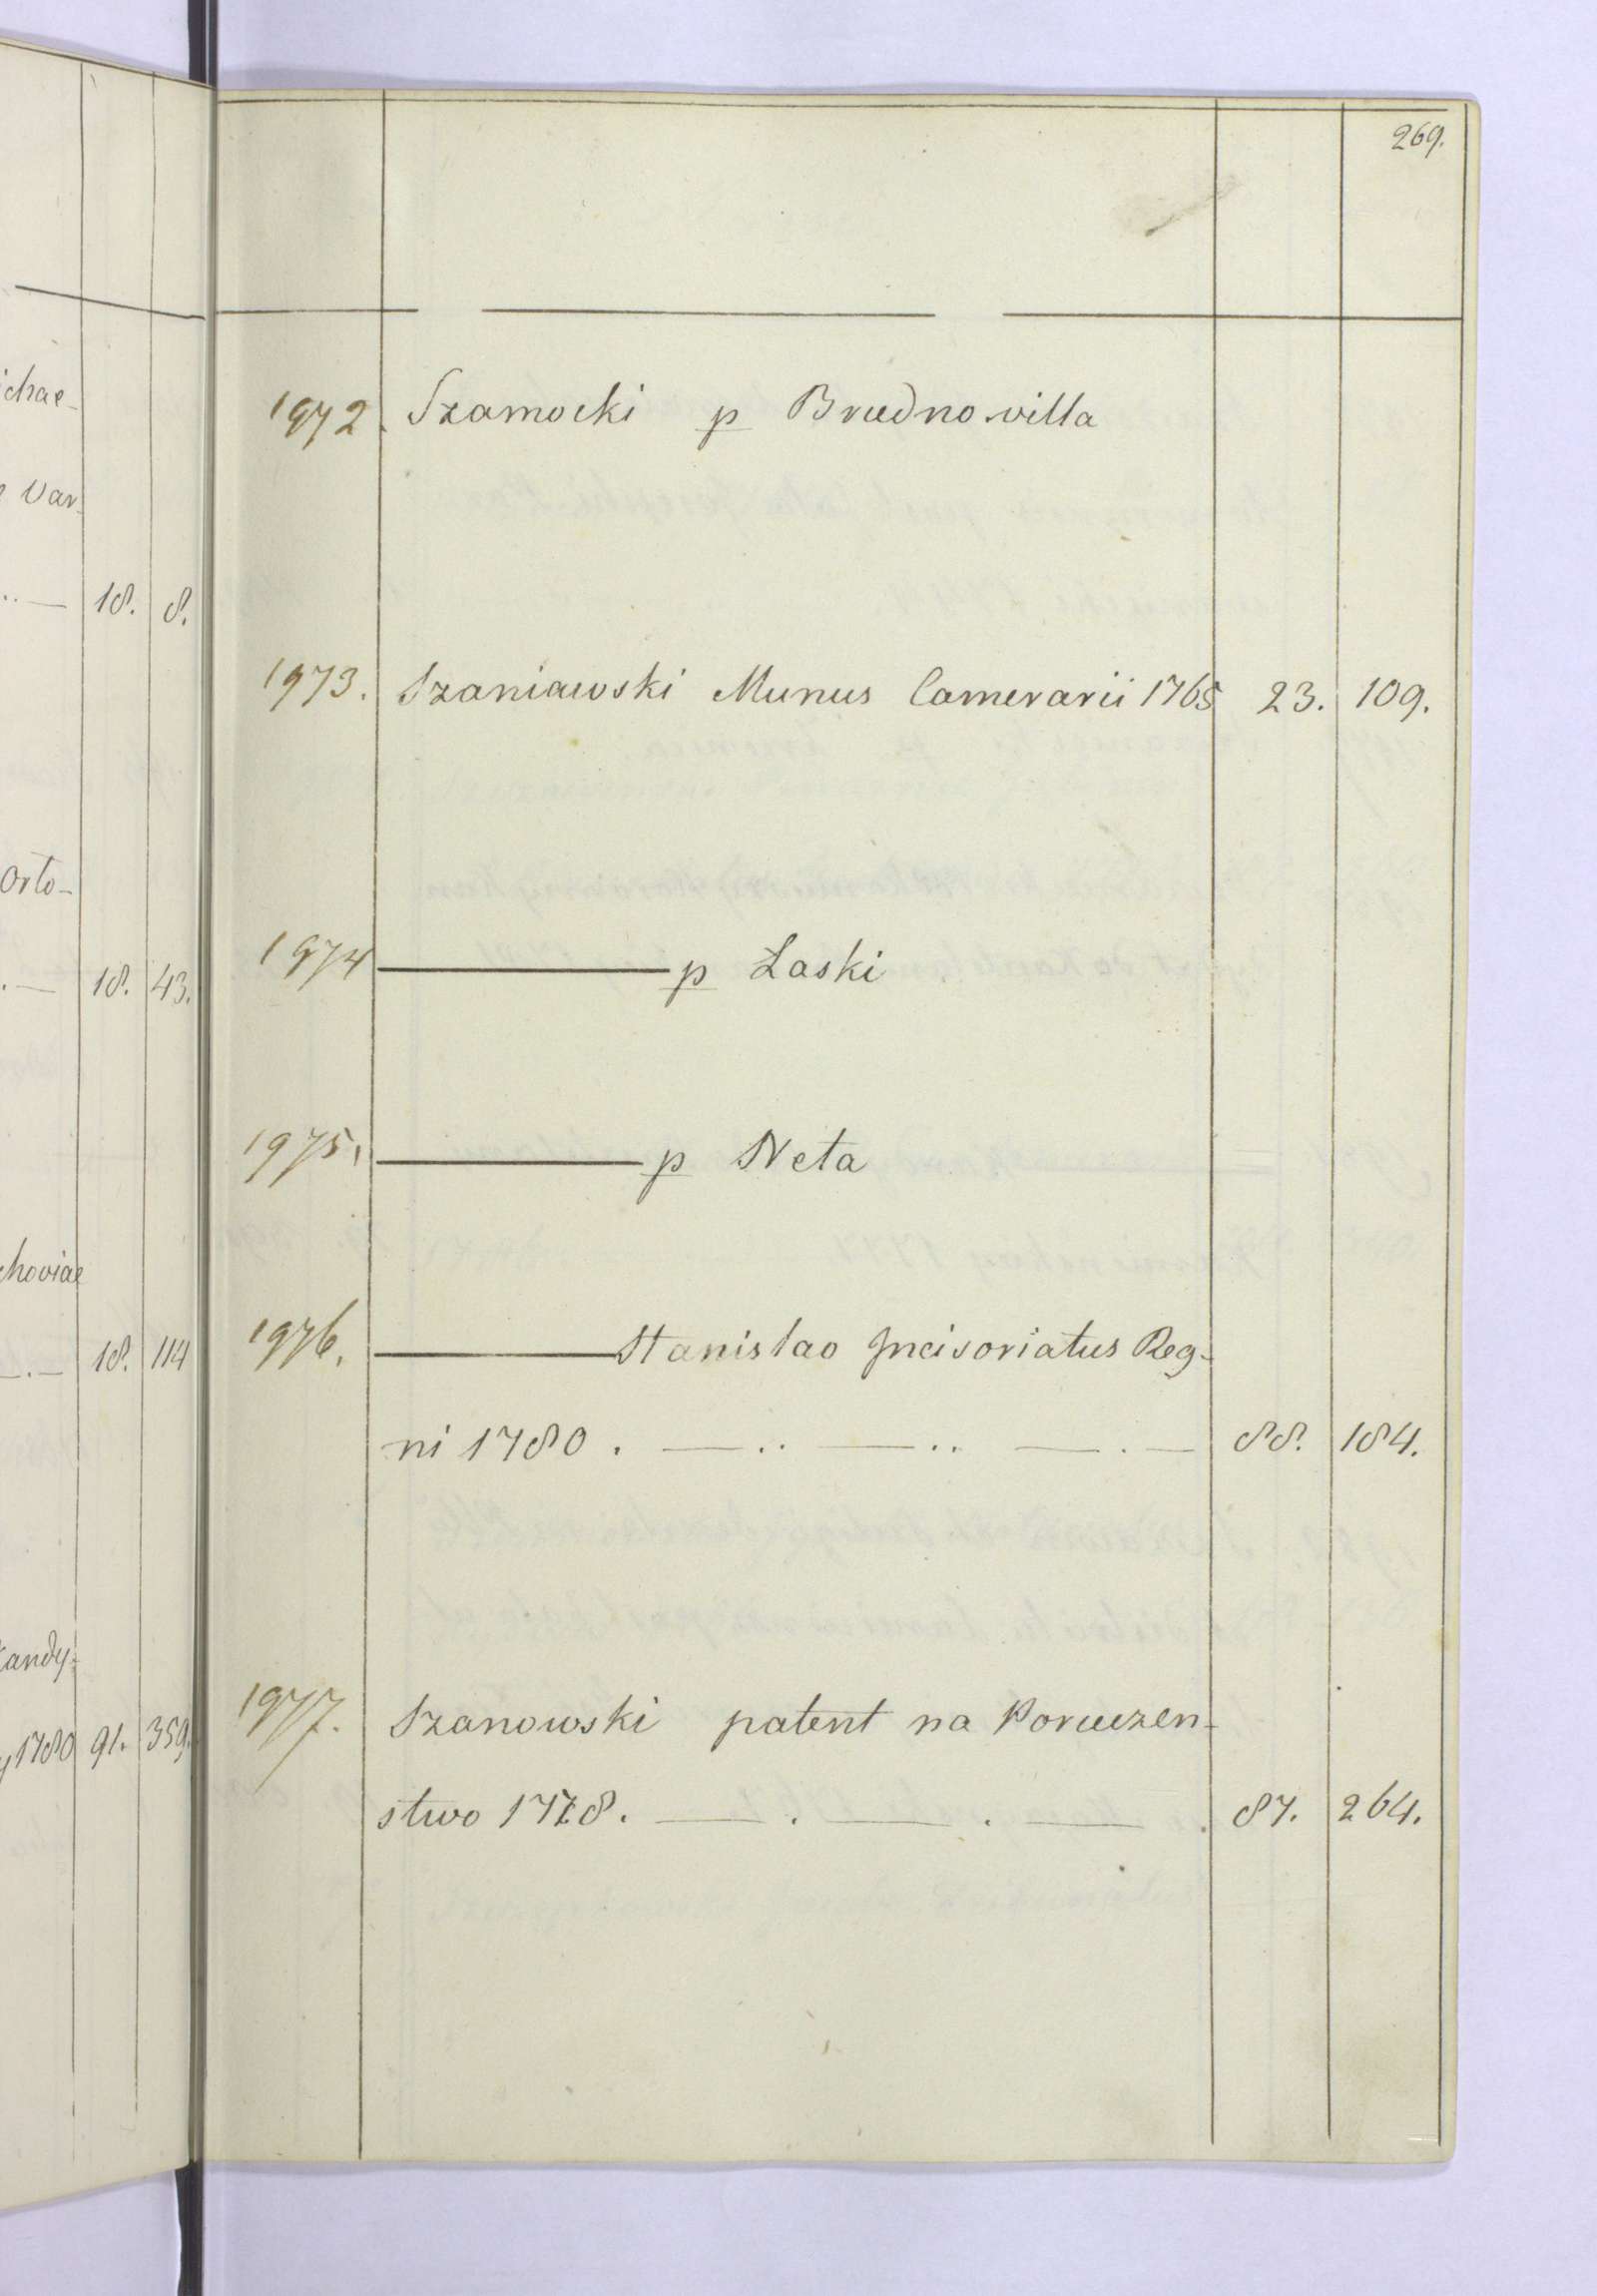 269.
1972. Szamocki p Brudno villa
1973. Szaniawski Munus Camerarii 1765 23. 109.
1974 p Łaski
1975. p Neta
1976. Stanislao Incisoriatus Reg-
ni 1780 . 88. 184.
1977. Szanowski patent na Poruczen-
stwo 1778. 87. 264.
ichae-
Var-
18. 8.
Orto-
18. 43.
choviae
18. 114
kandy-
1780 91. 359.